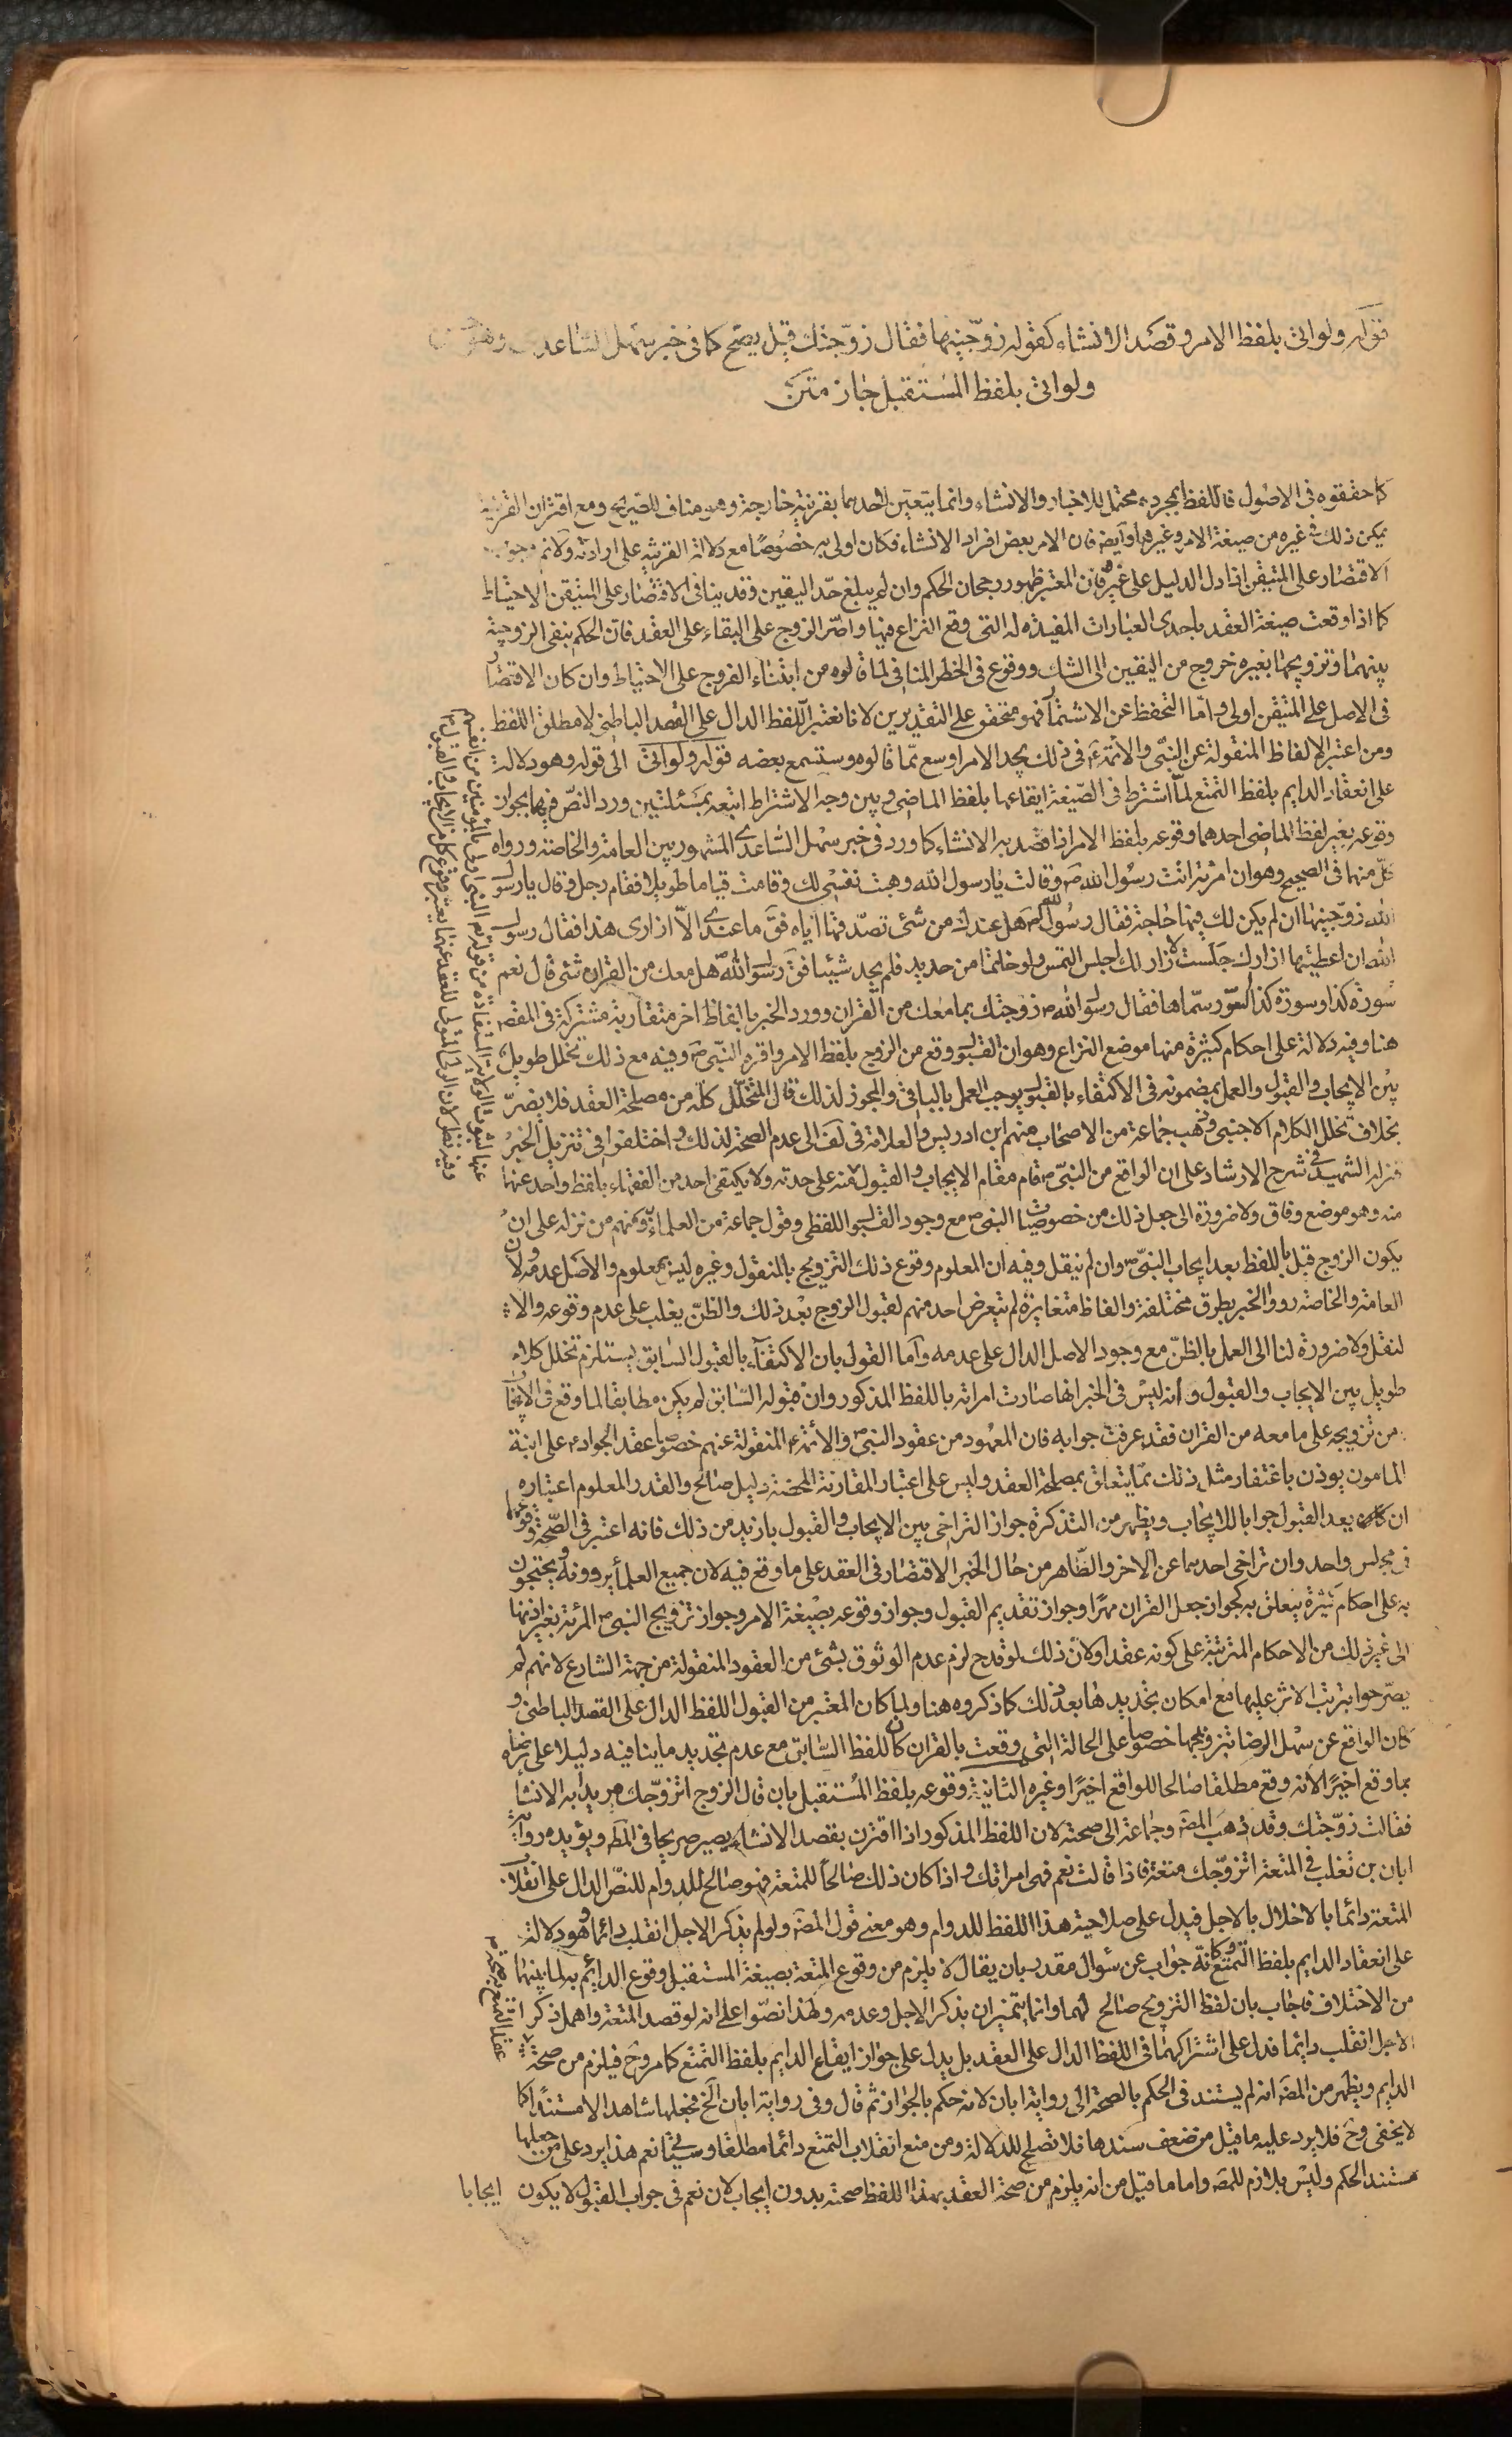 قوله ولو اتى بلفظ الامر وقصد الانشاء كقوله زوّجنيها فقال زوّجتك قيل يصح كما فى خبر سهل الساعدى وهو حسن
ولو اتى بلفظ المستقبل جاز متن
كما حققوه فى الاصول فاللفظ بمجرده محتمل للاخبار والانشاء وانما يتعين لاحدهما بقرينة خارجة وهو مناف للصريح ومع اقتران القرينة
يمكن ذلك فى غيره من صيغة الامر وغيرها وايضا فان الامر بعض افراد الانشاء فكان اولى به خصوصًا مع دلالة القرينة على ارادته ولانم وجوب
الاقتصار على المتيقن اذا دل الدليل على غيره فان المعتبر ظهور رجحان الحكم وان لم يبلغ حدّ اليقين وقد ينافى الاقتصار على المتيقن الاحتياط
كما اذا وقعت صيغة العقد باحدى العبارات المفيدة له التى وقع النزاع فيها واصّر الزوج على البقاء على العقد فان الحكم بنفى الزوجية
بينهما وتزويجها بغيره خروج من اليقين الى الشك ووقوع فى الخطر المنافى لما قالوه من ابتناء الفروج على الاحتياط وان كان الاقتصار
فى الاصل على المتيقن اولى واما التحفظ عن الاشتهار فهو متحقق على التقديرين لانا نعتبر اللفظ الدال على القصد الباطنى لا مطلق اللفظ
ومن اعتبر الالفاظ المنقولة عن النبّى والائمة ع فى ذلك يجد الامر اوسع ممّا قالوه وستسمع بعضه قوله ولو اتى الى قوله وهو دلالة
على انعقاد الدايم بلفظ التمتع لمّا اشترط فى الصّيغة ايقاعها بلفظ الماضى وبين وجه الاشتراط اتبعه بمسئلتين ورد النصّ فيهما بجواز
وقوعه بغير لفظ الماضى احدهما وقوعه بلفظ الامر اذا قصد به الانشاء كما ورد فى خبر سهل السّاعدى المشهور بين العامة والخاصة ورواه
كلّ منهما فى الصحيح وهو ان امرئة اتت رسُول الله ص وقالت يا رسول الله وهبت نفسى لك وقامت قياما طويلا فقام رجل وقال يا رسول
الله زوّجنيها ان لم يكن لك فيها حاجة فقال رسُول الله ص هل عندك من شئ تصدّقها اياه فقَ ما عندى الّا ازارى هذا فقال رسول
الله ان اعطيتها ازارك جلست لا ازار لك اجلس التمس ولو خاتما من حديد فلم يجد شيئا فقَ رسول الله هل معك من القران شئ قال نعم
سُورة كذا وسورة كذا لسور سمّاها فقال رسول الله ص زوجتك بما معك من القران وورد الخبر بالفاظ اخر متقاربة مشتركة فى المقصود
هنا وفيه دلالة على احكام كثيرة منها موضع النزاع وهو ان القبول وقع من الزوج بلفظ الامر واقره النبّى ص وفيه مع ذلك تخلل طويل
بين الايجاب والقبول والعمل بمضمونه فى الاكتفاء بالقبول يوجب العمل بالباقى والمجوز لذلك قال المتخلّل كله من مصلحة العقد فلا يضرّ
بخلاف تخلل الكلام الاجنبى وذهب جماعة من الاصحاب منهم ابن ادريس والعلامة فى لف الى عدم الصحة لذلك واختلفوا فى تنزيل الخبر
فنزله الشهيد فى شرح الارشاد على ان الواقع من النبّى ص قام مقام الايجاب والقبول منه على حدته ولا يكتفى احد من الفقهاء بلفظ واحد عنهما
منه وهو موضع وفاق ولا ضرورة الى جعل ذلك من خصوصيات النبى ص مع وجود القبول اللفظى وقول جماعة من العلماء به ومنهم من نزله على ان
يكون الزوج قبل باللفظ بعد ايجاب النبّى ص وان لم ينقل وفيه ان المعلوم وقوع ذلك التزويج بالمنقول وغيره ليس بمعلوم والاصل عدمه ولان
العامة والخاصة رووا الخبر بطرق مختلفة والفاظ متغايرة لم يتعرض احد منهم لقبول الزوج بعد ذلك والظنّ يغلب على عدم وقوعه والا
لنقل ولا ضرورة لنا الى العمل بالظنّ مع وجود الاصل الدال على عدمه وأما القول بان الاكتفاء بالقبول السابق يستلزم تخلل كلام
طويل بين الايجاب والقبول وانه ليس فى الخبر انها صارت امراته باللفظ المذكور وان قبوله السّابق لم يكن مطابقا لما وقع فى الايجاب
من تزويجه على ما معه من القران فقد عرفت جوابه فان المعهود من عقود النبى ص والائمة ع المنقولة عنهم خصوصا عقد الجواد ع على ابنة
المامون يوذن باغتفار مثل ذلك ممّا يتعلق بمصلحة العقد وليس على اعتبار المقارنة المحضة دليل صالح والقدر المعلوم اعتباره
ان كان يعد القبول جوابا للايجاب ويظهر من التذكرة جواز التراخى بين الايجاب والقبول بازيد من ذلك فانه اعتبر فى الصّحة وقوعهما
فى مجلس واحد وان تراخى احدهما عن الاخر والظّاهر من حال الخبر الاقتصار فى العقد على ما وقع فيه لان جميع العلمأ يروونه ويحتجون
به على احكام كثيرة يتعلق به كجواز جعل القران مهرًا وجواز تقديم القبول وجواز وقوعه بصيغة الامر وجواز تزويج النبى ص المرئة بغير اذنها
الى غير ذلك من الاحكام المترتبة على كونه عقدا ولان ذلك لو قدح لزم عدم الوثوق بشئ من العقود المنقولة من جهة الشارع لانهم لم
يصّرحوا بترتب الاثر عليها مع امكان تجديدها بعد ذلك كما ذكروه هنا ولما كان المعتبر من القبول اللفظ الدال على القصد الباطنى و
كان الواقع عن سهل الرضا بتزويجها خصوصا على الحالة التى وقعت بالقران كان للفظ السّابق مع عدم تجديد ما ينافيه دليلا على رضاه
بما وقع اخيرًا لانه وقع مطلقا صالحا للواقع اخيرًا وغيره الثانية وقوعه بلفظ المُستقبل بان قال الزوج اتزوّجك مريدا به الانشا
فقالت زوّجتك وقد ذهبَ المصَ وجماعة الى صحته لان اللفظ المذكور اذا اقترن بقصد الانشاء يصير صريحا فى المط ويؤيده رواية
ابان بن تغلب فى المتعة اتزوّجك متعة فاذا قالت نعم فهى امراتك واذا كان ذلك صالحًا للمتعة فهو صالح للدوام للنصّ الدال على انقلاب
المتعة دائما بالاخلال بالاجل فيدل على صلاحية هذا اللفظ للدوام وهو معنى قول المصَ ولو لم يذكر الاجل انقلب دائما وهو دلالة
على انعقاد الدايم بلفظ التمتع وكانه جواب عن سُؤال مقدر بان يقال لا يلزم من وقوع المتعة بصيغة المستقبل وقوع الدايم به لما بينهما
من الاختلاف فاجاب بان لفظ التزويج صالح لهما وانما يتميزان بذكر الاجل وعدمه ولهذا نصّوا على انه لو قصد المتعة واهمل ذكر
الاجل انقلب دائما فدل على اشتراكهما فى اللفظ الدال على العقد بل يدل على جواز ايقاع الدايم بلفظ التمتع كما مر وح فيلزم من صحة
عقد التمتع به صحة
الدايم ويظهر من المصَ انه لم يستند فى الحكم بالصحة الى رواية ابان لانه حكم بالجواز ثم قال وفى رواية ابان الخ فجعلها شاهدا لا مستندًا كما
لا يخفى وح فلا يرد عليه ما قيل من ضعف سندها فلا تصلح للدلالة ومن منع انقلاب التمتع دائما مطلقا وسيجئ نعم هذا يرد على من جعلها
مستند الحكم وليس بلازم للمصَ واما ما قيل من انه يلزم من صحة العقد بهذا اللفظ صحته بدون ايجاب لان نعم فى جواب القبول لا يكون ايجابا